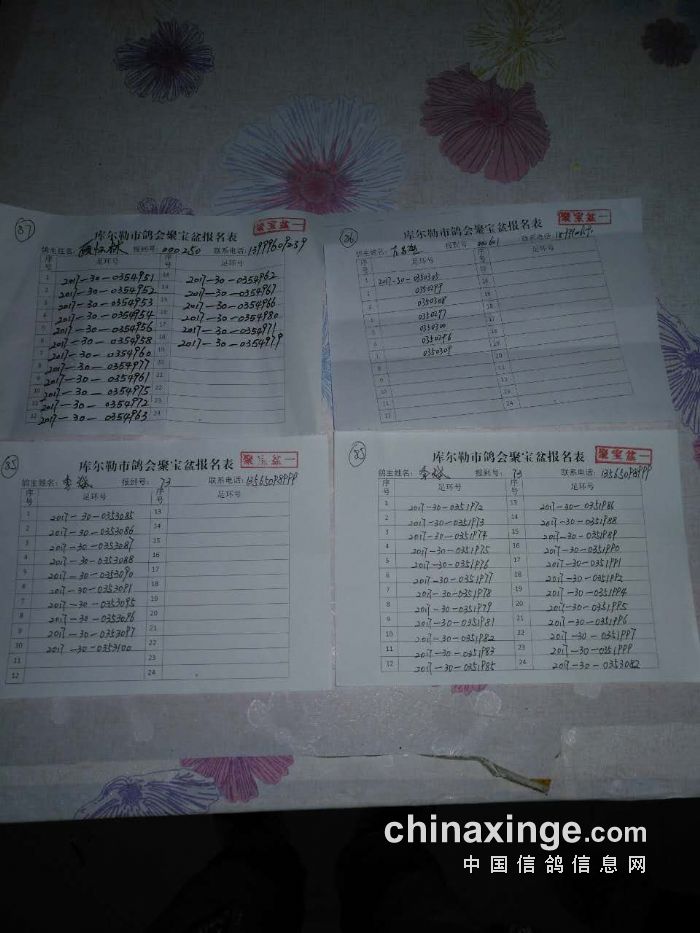 87
聚宝盆一
库尔勒市鸽会聚宝盆报名表
鸽主姓名: 林 报到号: 000250 联系电话:
序号 足环号 序号 足环号
1 2017-30-0354951 13 2017-30-0354962
2 2017-30-0354952 14 2017-30-0354967
3 2017-30-0354953 15 2017-30-0354966
4 2017-30-0354954 16 2017-30-0354980
5 2017-30-0354956 17 2017-30-0354971
6 2017-30-0354958 18 2017-30-0354979
7 2017-30-0354960 19
8 2017-30-0354977 20
9 2017-30-0354961 21
10 2017-30-0354975 22
11 2017-30-0354972 23
12 2017-30-0354963 24
86
聚宝盆一
库尔勒市鸽会聚宝盆报名表
鸽主姓名: 报到号: 联系电话:
序号 足环号 序号 足环号
1 2017-30-0350305
2 0350299
3 0350308
4 0350297
5 0350300
6 0350296
7 0350309
85
聚宝盆一
库尔勒市鸽会聚宝盆报名表
鸽主姓名: 李 报到号: 73 联系电话: 13565098999
序号 足环号 序号 足环号
1 2017-30-0353085 13
2 2017-30-0353086 14
3 2017-30-0353087 15
4 2017-30-0353088 16
5 2017-30-0353090 17
6 2017-30-0353091 18
7 2017-30-0353095 19
8 2017-30-0353096 20
9 2017-30-0353097 21
10 2017-30-0353100 22
11 23
12 24
85
聚宝盆一
库尔勒市鸽会聚宝盆报名表
鸽主姓名: 李 报到号: 73 联系电话: 13565098999
序号 足环号 序号 足环号
1 2017-30-0351972 13 2017-30-0351986
2 2017-30-0351973 14 2017-30-0351988
3 2017-30-0351974 15 2017-30-0351989
4 2017-30-0351975 16 2017-30-0351990
5 2017-30-0351976 17 2017-30-0351991
6 2017-30-0351977 18 2017-30-0351992
7 2017-30-0351978 19 2017-30-0351994
8 2017-30-0351979 20 2017-30-0351995
9 2017-30-0351981 21 2017-30-0351996
10 2017-30-0351982 22 2017-30-0351997
11 2017-30-0351983 23 2017-30-0351999
12 2017-30-0351985 24 2017-30-0353082
chinaxinge.com
中国信鸽信息网